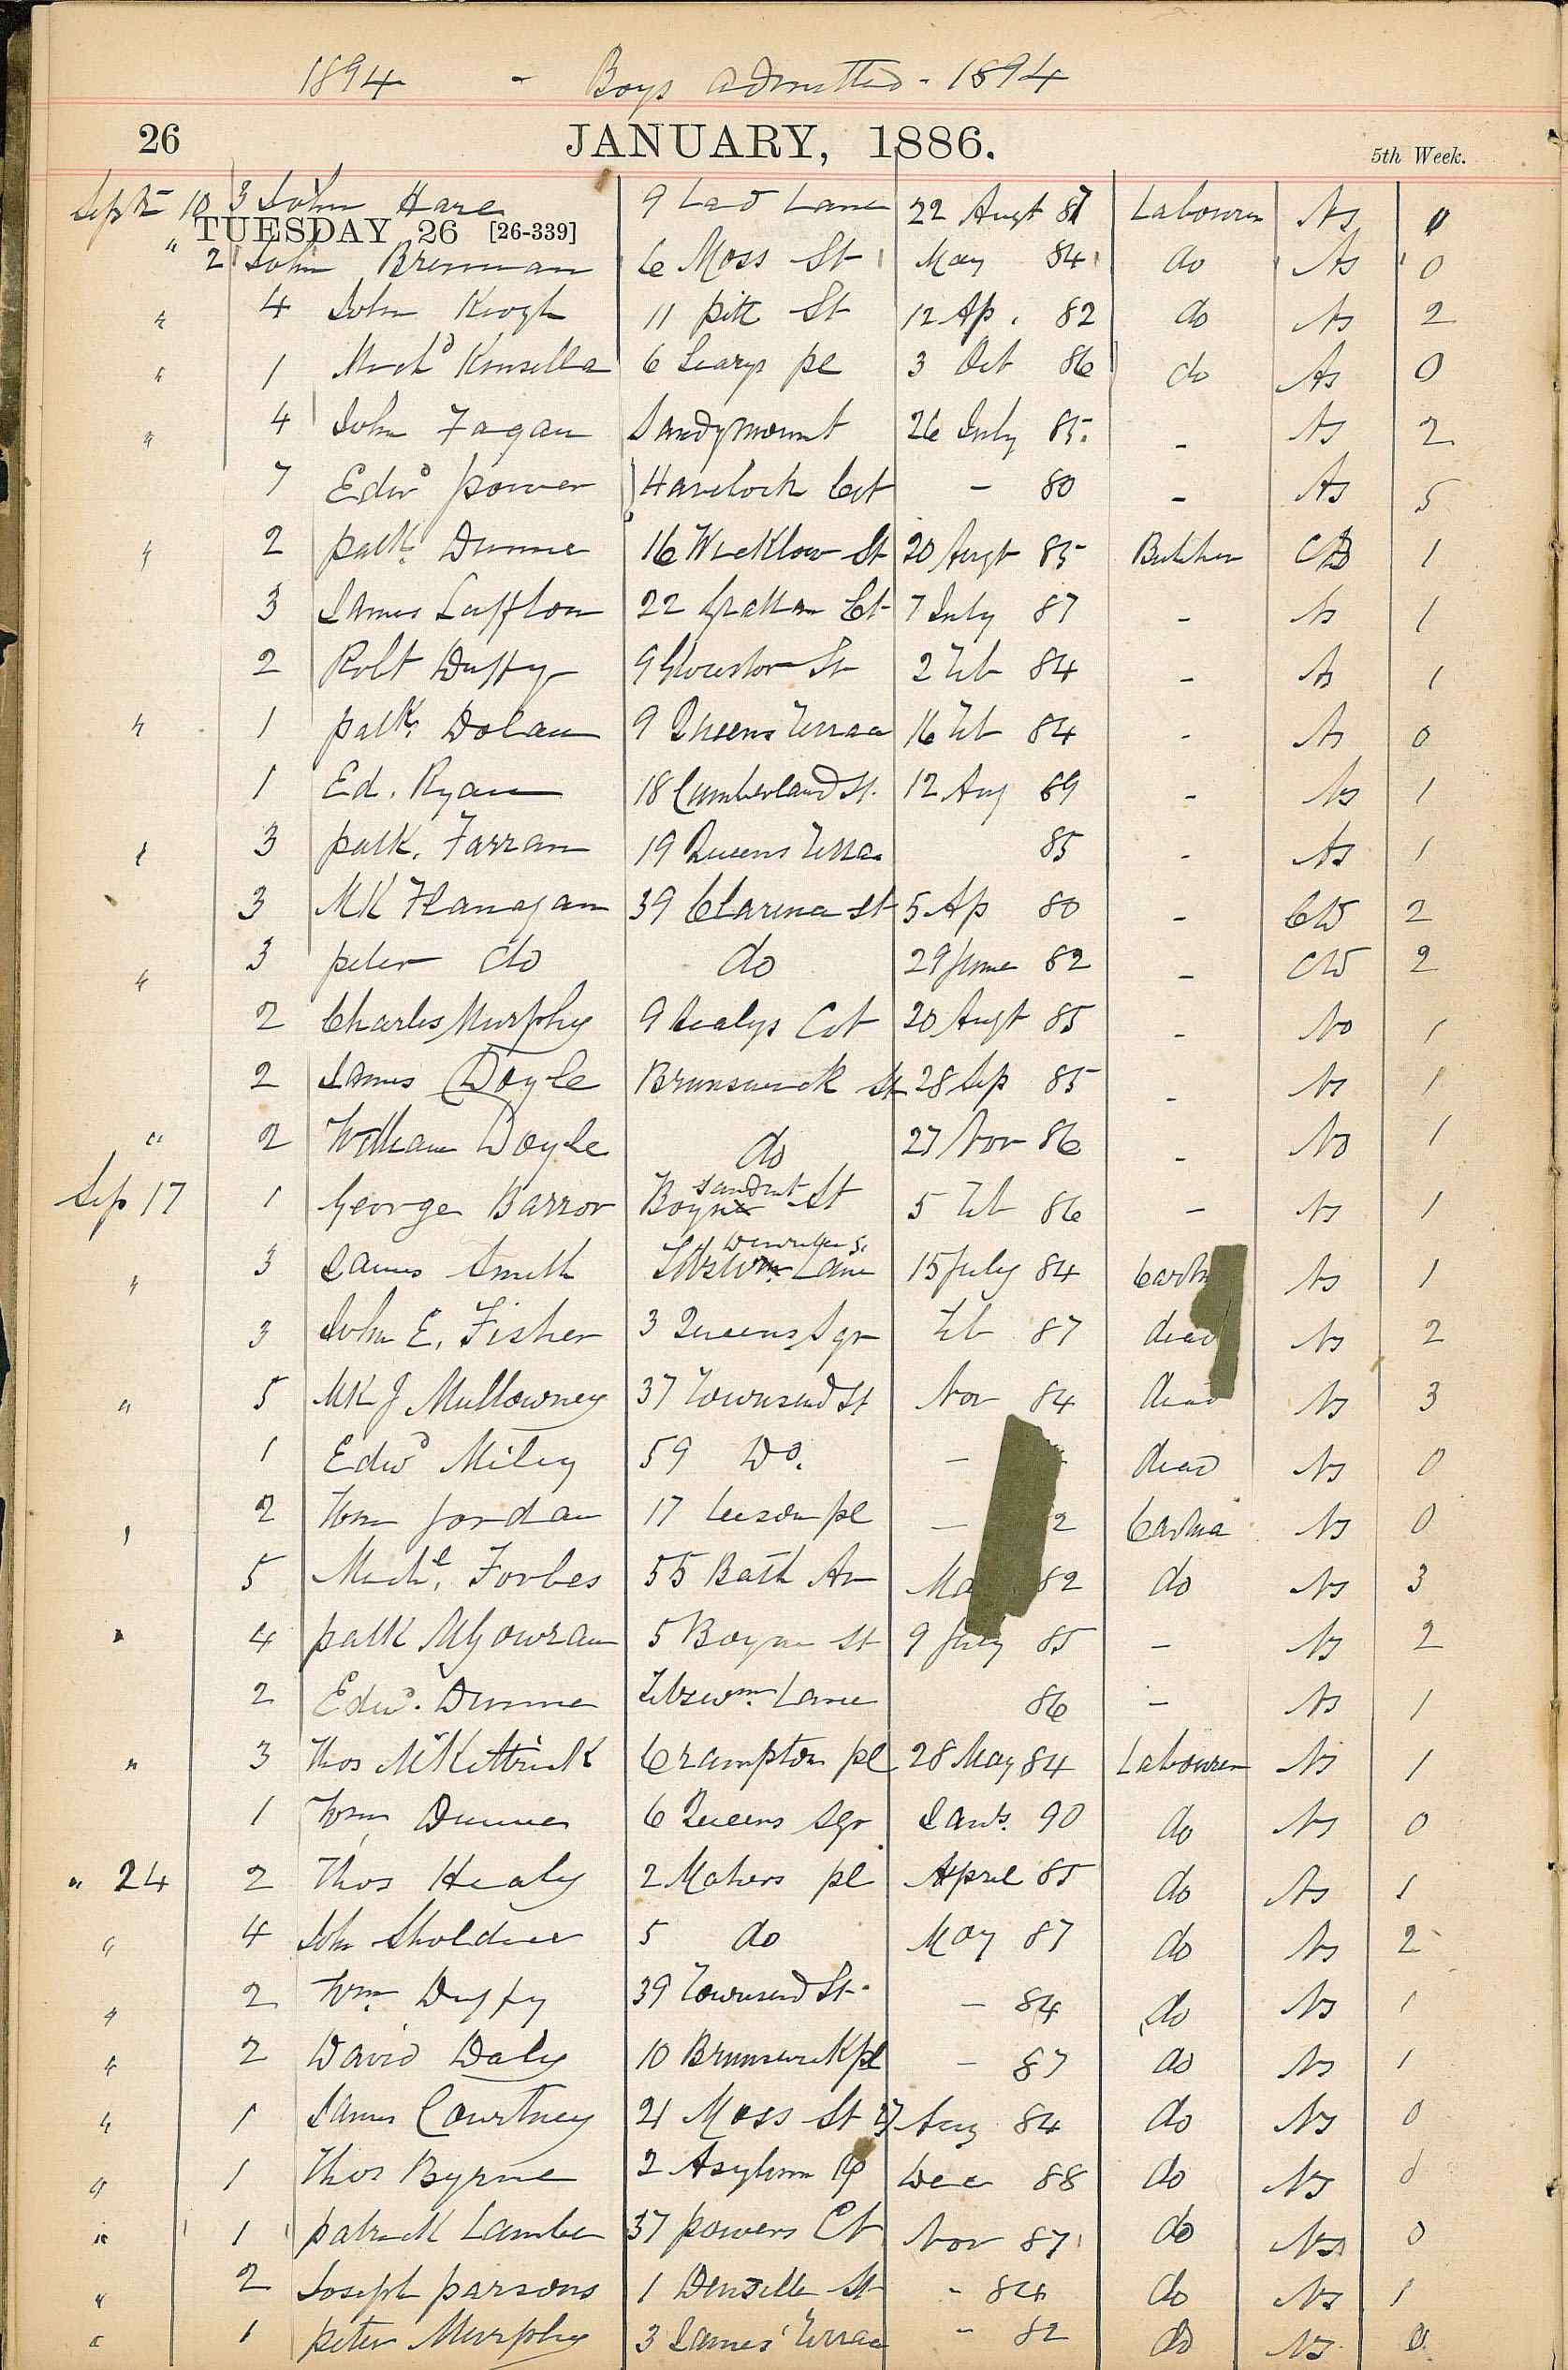 1894 - Boys admitted - 1894
26 JANUARY, 1886. 5th Week.
Sept 10 3 John Hare 9 Lad Lane 22 Augt 87 Labourer NS 0
TUESDAY 26 [26-339]
" 2 John Brennan 6 Moss St May 84 do NS 0
" 4 John Keogh 11 pitt St 12 Ap. 82 do NS 2
" 1 Michd Kinsella 6 Learys pl 3 Oct 86 do NS 0
" 4 John Fagan Sandymount 26 July 85. - NS 2
7 Edwd power Havelock Cot - 80 - NS 5
" 2 patk. Dunne 16 Wicklow St 20 Augt 85 Butcher CB 1
3 James Luffton 22 Grattan Ct 7 July 87 - NS 1
2 Robt Duffy 9 Glouestor St 2 Feb 84 - NS 1
" 1 patk. Dolan 9 Queens Terrace 16 Feb 84 - NS 0
1 Ed. Ryan 18 Cumberland St. 12 Aug 89 - NS 1
" 3 patk. Farran 19 Queens Terrac 85 - NS 1
3 MK Flanagan 39 Clarence St 5 Ap 80 - CW 2
" 3 peter do do 29 June 82 - CW 2
2 Charles Murphy 9 Healys Cot 20 Augt 85 - No 1
2 James Doyle Brunswick St 28 Sep 85 - NS 1
" 2 William Doyle do 27 Nov 86 - No 1
Sandwt
Sep 17 1 George Barror Boyne St 5 Feb 86 - NS 1
" 3 James Smith Fitzwm. Lane 15 July 84 NS 1
3 John E. Fisher 3 Queens Sqr Feb 87 dead NS 2
" 5 MK J Mullowney 37 Townsend St Nov 84 dead NS 3
1 Edwd Miley 59 Do. - dead NS 0
" 2 Wm Jordan 17 Leeson pl - 2 NS 0
5 Michl. Forbes 55 Bath Av Ma 82 do NS 3
" 4 patk McGowran 5 Boyne St 9 July 85 - NS 2
2 Edwd. Dunne Fitzwm. Lane 86 - NS 1
" 3 Thos McKittrick Crampton pl 28 May 84 Labourer NS 1
1 Wm Dunne 6 Queens Sqr Jany. 90 do NS 0
" 24 2 Thos Healy 2 Mahers pl April 85 do NS 1
" 4 John Sholdice 5 do May 87 do NS 2
" 2 Wm. Duffy 39 Townsend St. - 84 do NS 1
" 2 David Daly 10 Brunswick pl - 87 do NS 1
" 1 James Courtney 21 Moss St 27 Aug 84 do NS 0
" 1 Thos Byrne 2 Asylum Dec 88 do NS 0
" 1 patrick Lambe 37 powers Ct Nov 87 do NS 0
" 2 Joseph parsons 1 Denzille St - 84 do NS 1
" 1 peter Murphy 3 James' Terrac - 82 do NS 0